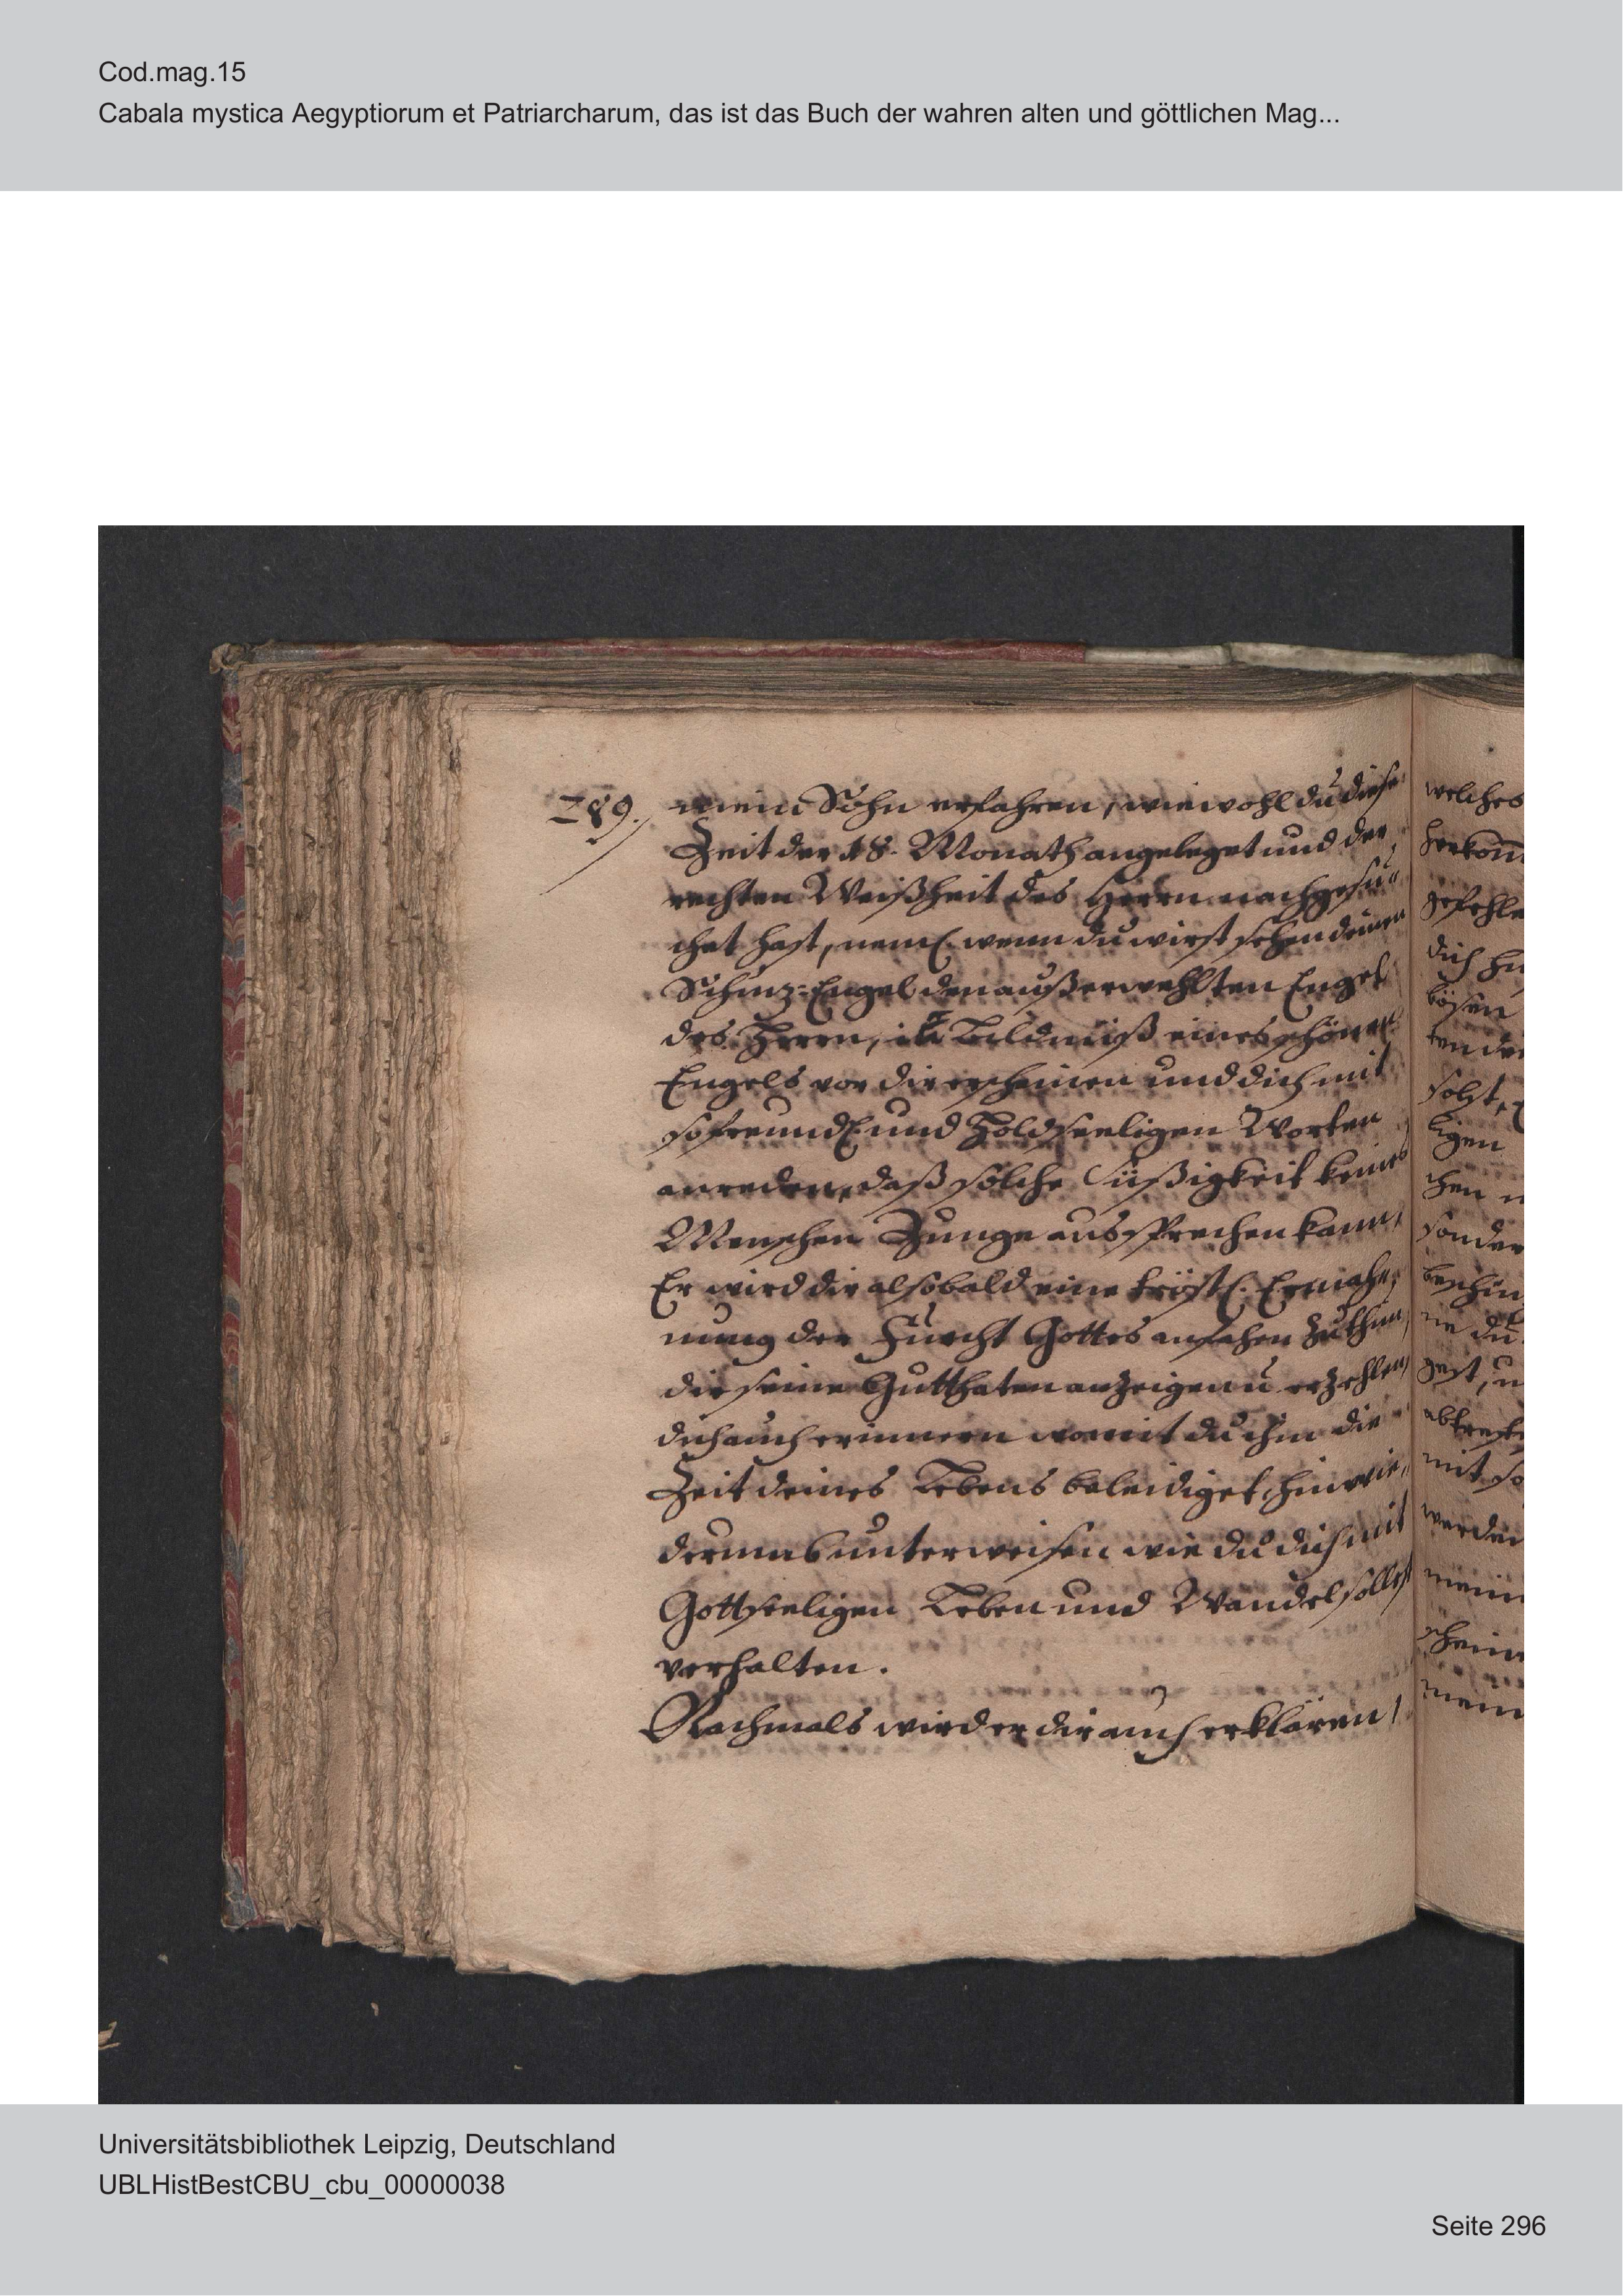 Cod.mag.15
Cabala mystica Aegyptiorum et Patriarcharum, das ist das Buch der wahren alten und göttlichen Mag...
289.
mein Sohn erfahren, wiewohl du diese
Zeit der 18. Monath angeleget und der
rechten Weißheit des Herrn nachgesu¨
chet hast, neml. wenn du wirst sehen deinen
Schuz=Engel den außerwehlten Engel
des Herrn, in Bildnüß eines schönen
Engels vor dir erscheinen und dich mit
so freundl. und Holdseeligen Worten
anreden, daß solche Süßigkeit keines
Menschen Zunge aussprechen kann,
Er wird dir alsobald eine tröstl. Ermah¸
nung der Furcht Gottes anfahen zu thun,
dir seine Gutthaten anzeigen u erzehlen,
dich auch erinnern womit du ihm die
Zeit deines Lebens beleidiget, hinwie¸
derumb unterweisen wie du dich mit
Gottseeligen Leben und Wandel sollest
verhalten.
Nachmals wird er dir auch erklären,
welches
herkom̄
gefehle
dich
bösen
solst,
ligen
chen
sonder
ne du
gest, u
mit so
werden
mein
Universitätsbibliothek Leipzig, Deutschland
UBLHistBestCBU_cbu_00000038
Seite 296